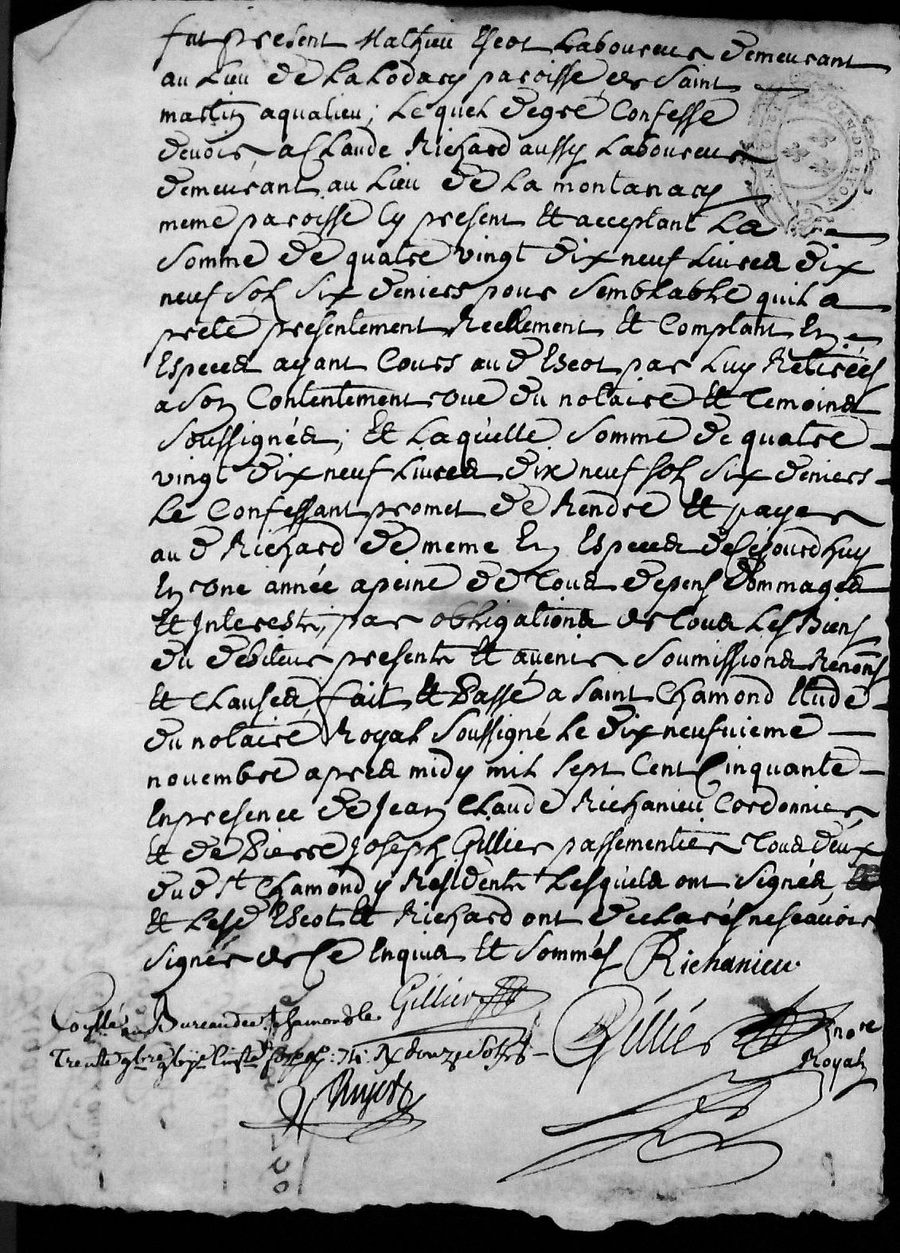 fut present Mathieu Escot Laboureur demeurant
au Lieu de La Lodary paroisse de Saint
martin aqualieu; Le quel de gré Confesse
devoir a Claude Richard aussy Laboureur
demeurant au Lieu de La montanary
meme paroisse cy present Et acceptant La
Somme de quatre vingt dix neuf Livres dix
neuf sol six deniers pour semblable quil a
preté presentement Reellement Et Comptant En
Especes ayant Cours au d Escot par Luy Retirées
a son Contentement vue du notaire Et temoins
Soussignés; Et Laquelle Somme de quatre
vingt dix neuf Livres dix neuf sol six deniers
Le Confessant promet de Rendre Et payer
au d Richard de meme En Especes de Cejourdhuy
En une année a peine de tous depens dommages
Et Interests, par obligations de tous Les Biens
du debiteur presents Et avenir Soumissions Renons
Et Clauses fait Et Passé a Saint Chamond Etude
du notaire Royal Soussigné Le dix neufvieme
novembre apres midy mil sept Cent Cinquante
En presence de Jean Claude Richanieu Cordonnier
Et de Pierre Joseph Gillier passementier tous deux
du d St Chamond y Residents Lesquels ont signés
Et Lesd Escot Et Richard ont declarés ne scavoir
signer de Ce Enquis Et Sommés Richanieu
Gillier
Conllé au Bureau de St chamond le
Trente 9bre douze sols
Gillier nore
Royal